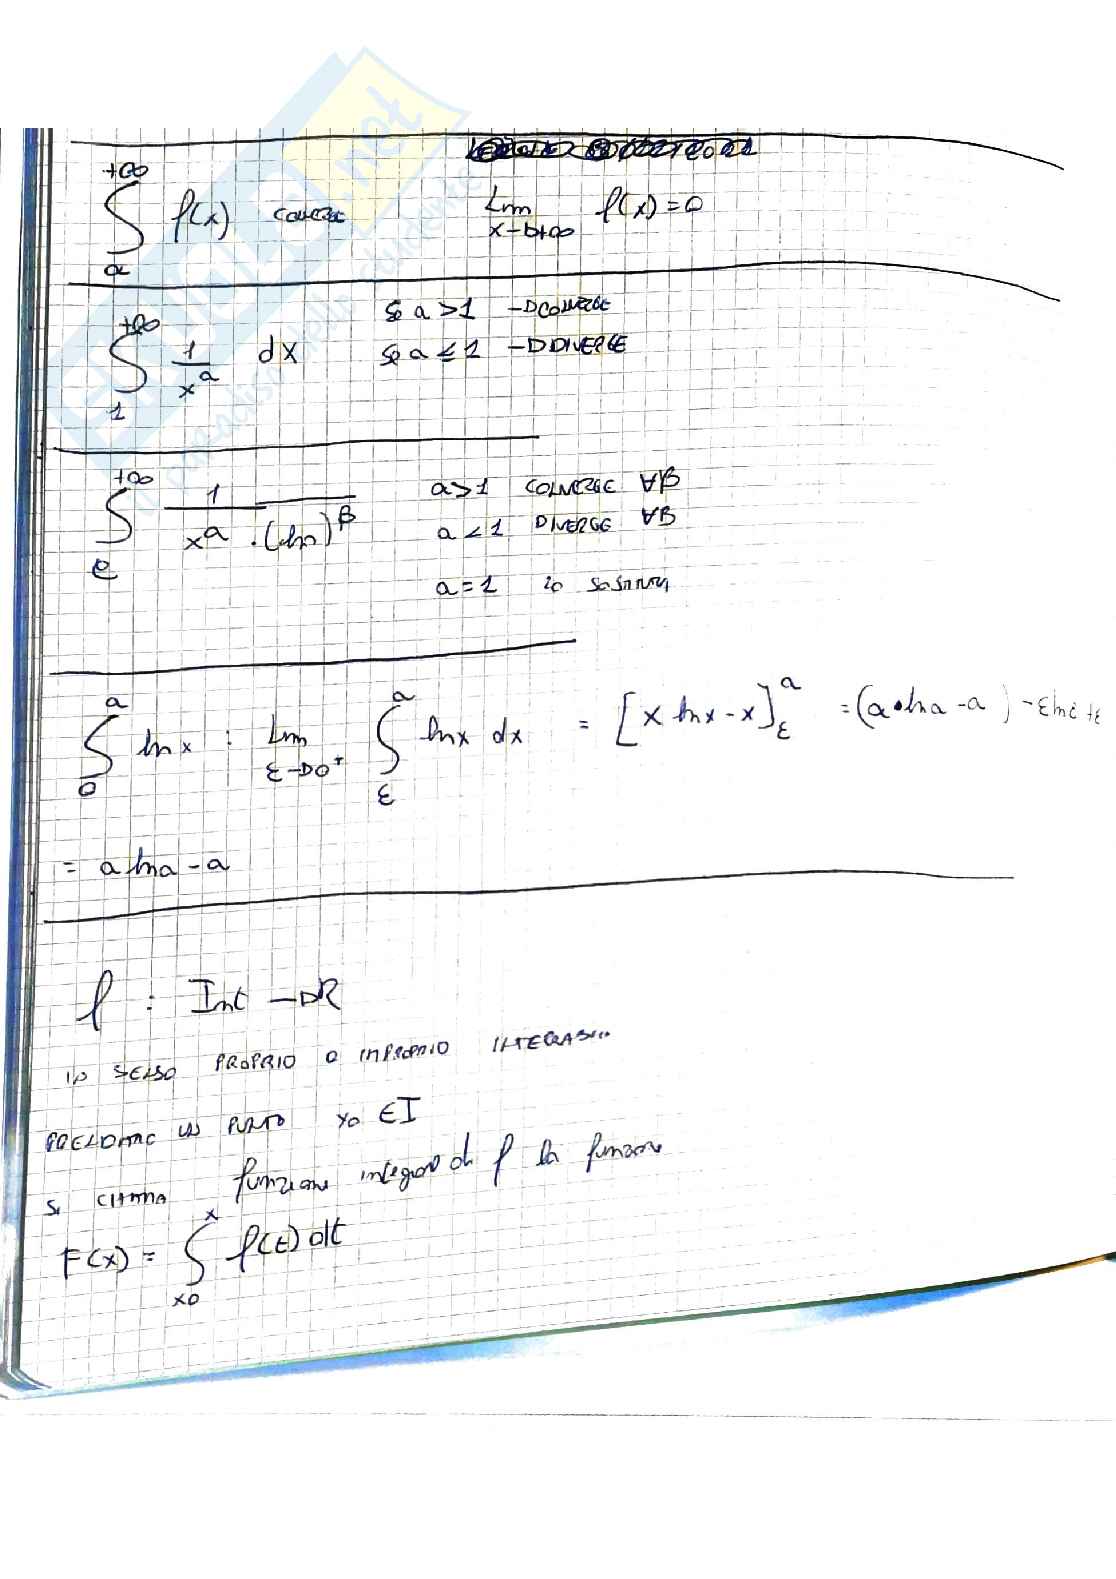 ∫_a^{+∞} f(x) CONVERGE lim_{x→+∞} f(x)=0
∫_1^{+∞} 1/x^a dx
SE a>1 → CONVERGE
SE a≤1 → DIVERGE
∫_e^{+∞} 1/(x^a · (ln)^β)
a>1 CONVERGE ∀β
a<1 DIVERGE ∀β
a=1
∫_0^a ln x : lim_{ε→0⁺} ∫_ε^a ln x dx = [x ln x - x]_ε^a = (a·ln a - a) - ε ln ε + ε
= a ln a - a
f : Int → R
IN SENSO PROPRIO O IMPROPRIO
UN PUNTO x0 ∈ I
SI CHIAMA funzione integrale di f la funzione
F(x) = ∫_{x0}^x f(t) dt